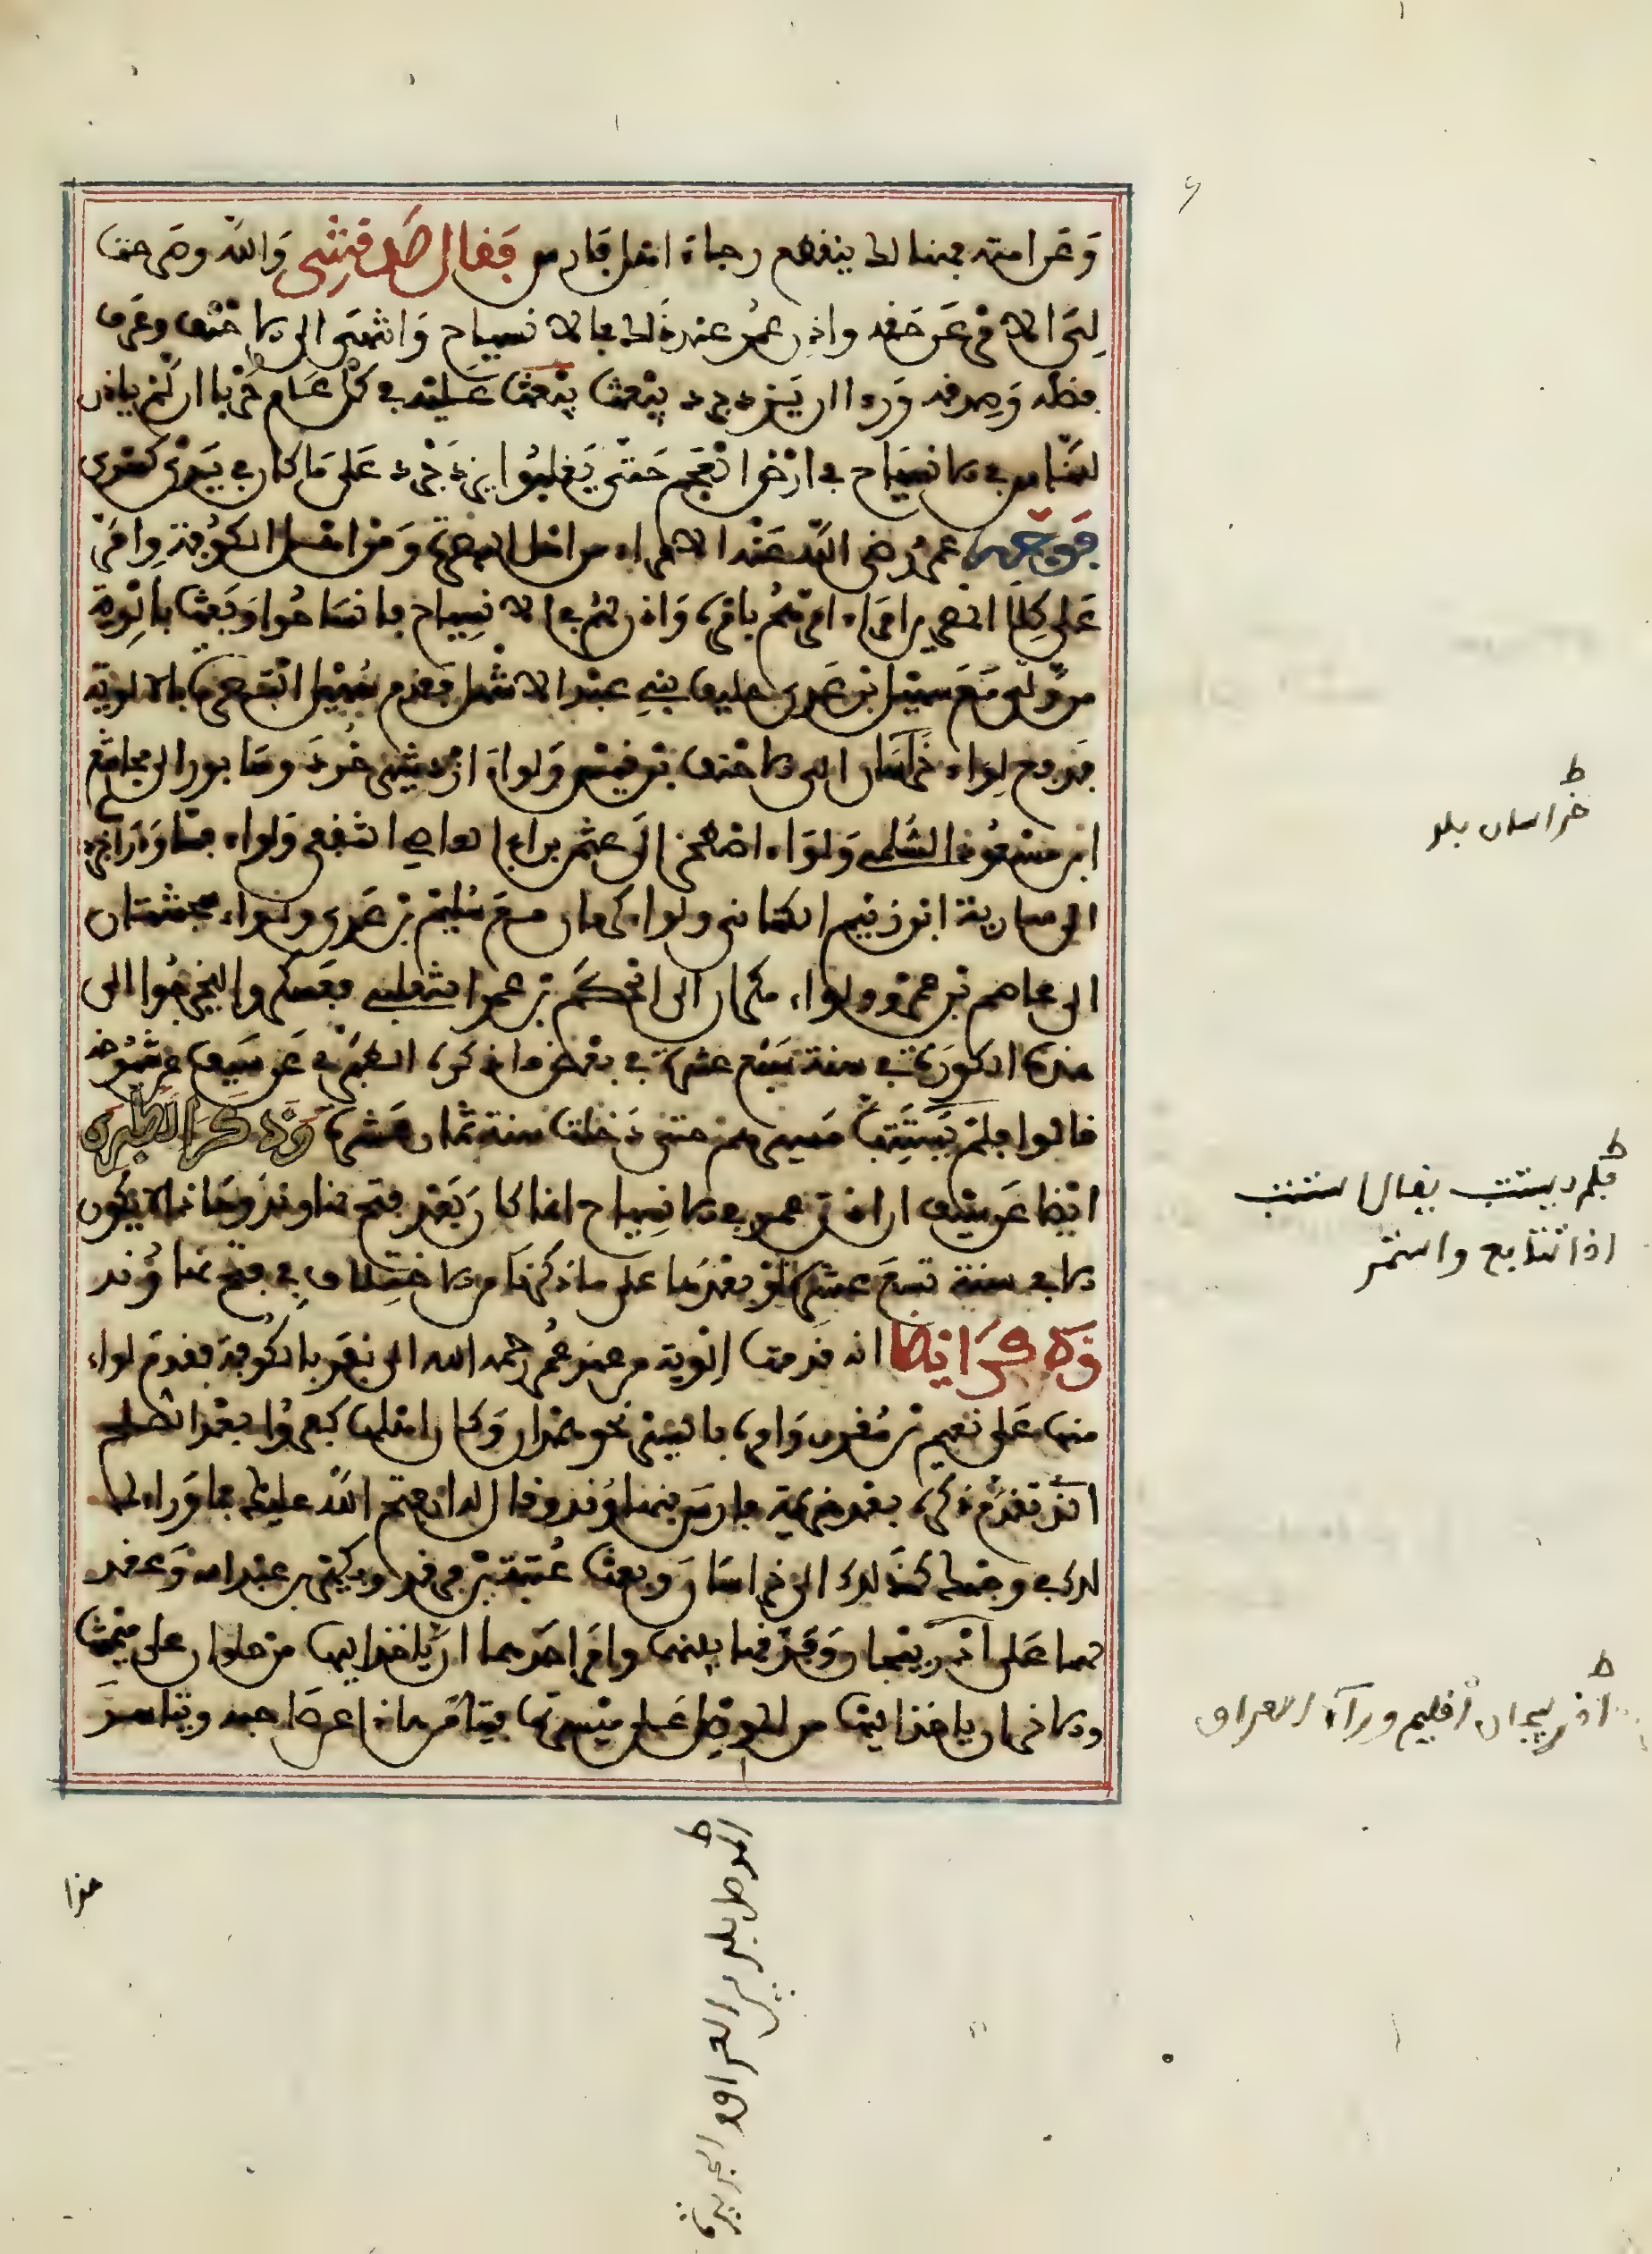 وعن امته فهنالك ينقطع رجاء اهل فارس فقال صدقتني والله وشرحت
لي الامر عن حقه واذن عمر عند ذلك في الانسياح وانتهى الى الاحنف وعرف
فضله وصدقه وراا ان يزدجرد يبعث يبعث عليه في كل عام حربا ان لم ياذن
للناس في الانسياح في ارض العجم حتى يغلبوا يزدجرد على ما كان في يدي كسرى
فوجه عمر رضي الله عنه الامراء من اهل البصرة ومن اهل الكوفة وامر
على كلا امراء امرهم بامره واذن لهم في الانسياح فانساحوا وبعث بالوية
من ولى مع سهيل بن عدي حليف بني عبد الاشهل فقدم سهيل البصرة بالالوية
فدفع لواء خراسان الى الاحنف بن قيس ولواء اردشير خره وسابور الى مجاشع
ابن مسعود السلمي ولواء اصطخر الى عثمن بن ابي العاصي الثقفي ولواء فسا ودارابجرد
الى سارية ابن زنيم الكناني ولواء كرمان مع سهيل بن عدي ولواء سجستان
الى عاصم بن عمرو ولواء مكران الى الحكم بن عمرو التغلبي فعسكروا ليخرجوا الى
هذه الكور في سنة سبع عشرة في بعض ما ذكره الطبري عن سيف عن شيوخه
قالوا فلم يستتب مسيرهم حتى دخلت سنة ثمان عشرة وذكر الطبري
ايضا عن سيف ان اذن عمر في الانسياح انما كان بعد فتح نهاوند وهذا لا يكون
الا في سنة تسع عشرة او بعدها على ما ذكرنا من الاختلاف في فتح نهاوند
وذكر ايضا انه قدمت الوية من عند عمر رحمه الله الى نفر بالكوفة فقدم لواء
منها على نعيم بن مقرن وامره بالمسير نحو همذان وكان اهلها كفروا بعد الصلح
الذي تقدم ذكره بعد هزيمة فارس بنهاوند وقال له ان يفتح الله عليك فما وراء ذلك
لك في وجهك كذلك الى خراسان وبعث عتبة بن فرقد وبكير بن عبد الله وعقد
لهما على اذربيجان وفرقها بينهما وامر احدهما ان ياخذ اليها من حلوان على ميمنتها
والاخر ان ياخذ اليها من الموصل على ميسرتها فتيامن هذا عن صاحبه وتياسر
هذا
خراسان بلد
فلم يستتب يقال استتب
اذا تتابع واستمر
اذربيجان اقليم وراء العراق
الموصل بلد بين العراق والجزيرة